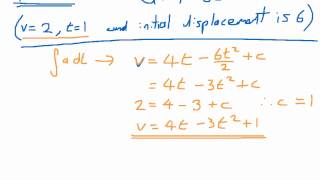 (v=2, t=1 and initial displacement is 6)
∫adt → v = 4t - 6t²/2 + c
= 4t - 3t² + c
2 = 4 - 3 + c ∴ c = 1
v = 4t - 3t² + 1